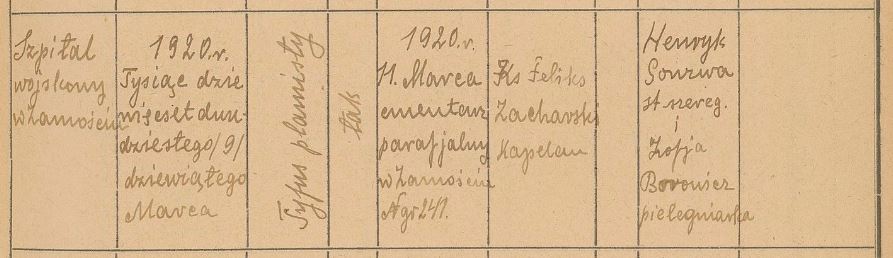 Szpital
wojskowy
w Zamościu
1920.r.
Tysiąc dzie
więćset dwu-
dziestego /9/
dziewiątego
Marca
Tyfus plamisty
tak
1920.r.
11. Marca
cmentarz
parafjalny
w Zamościu
N gr 241.
Ks Feliks
Zacharski
Kapelan
Henryk
st.
i
Zofja
Borowicz
pielęgniarka